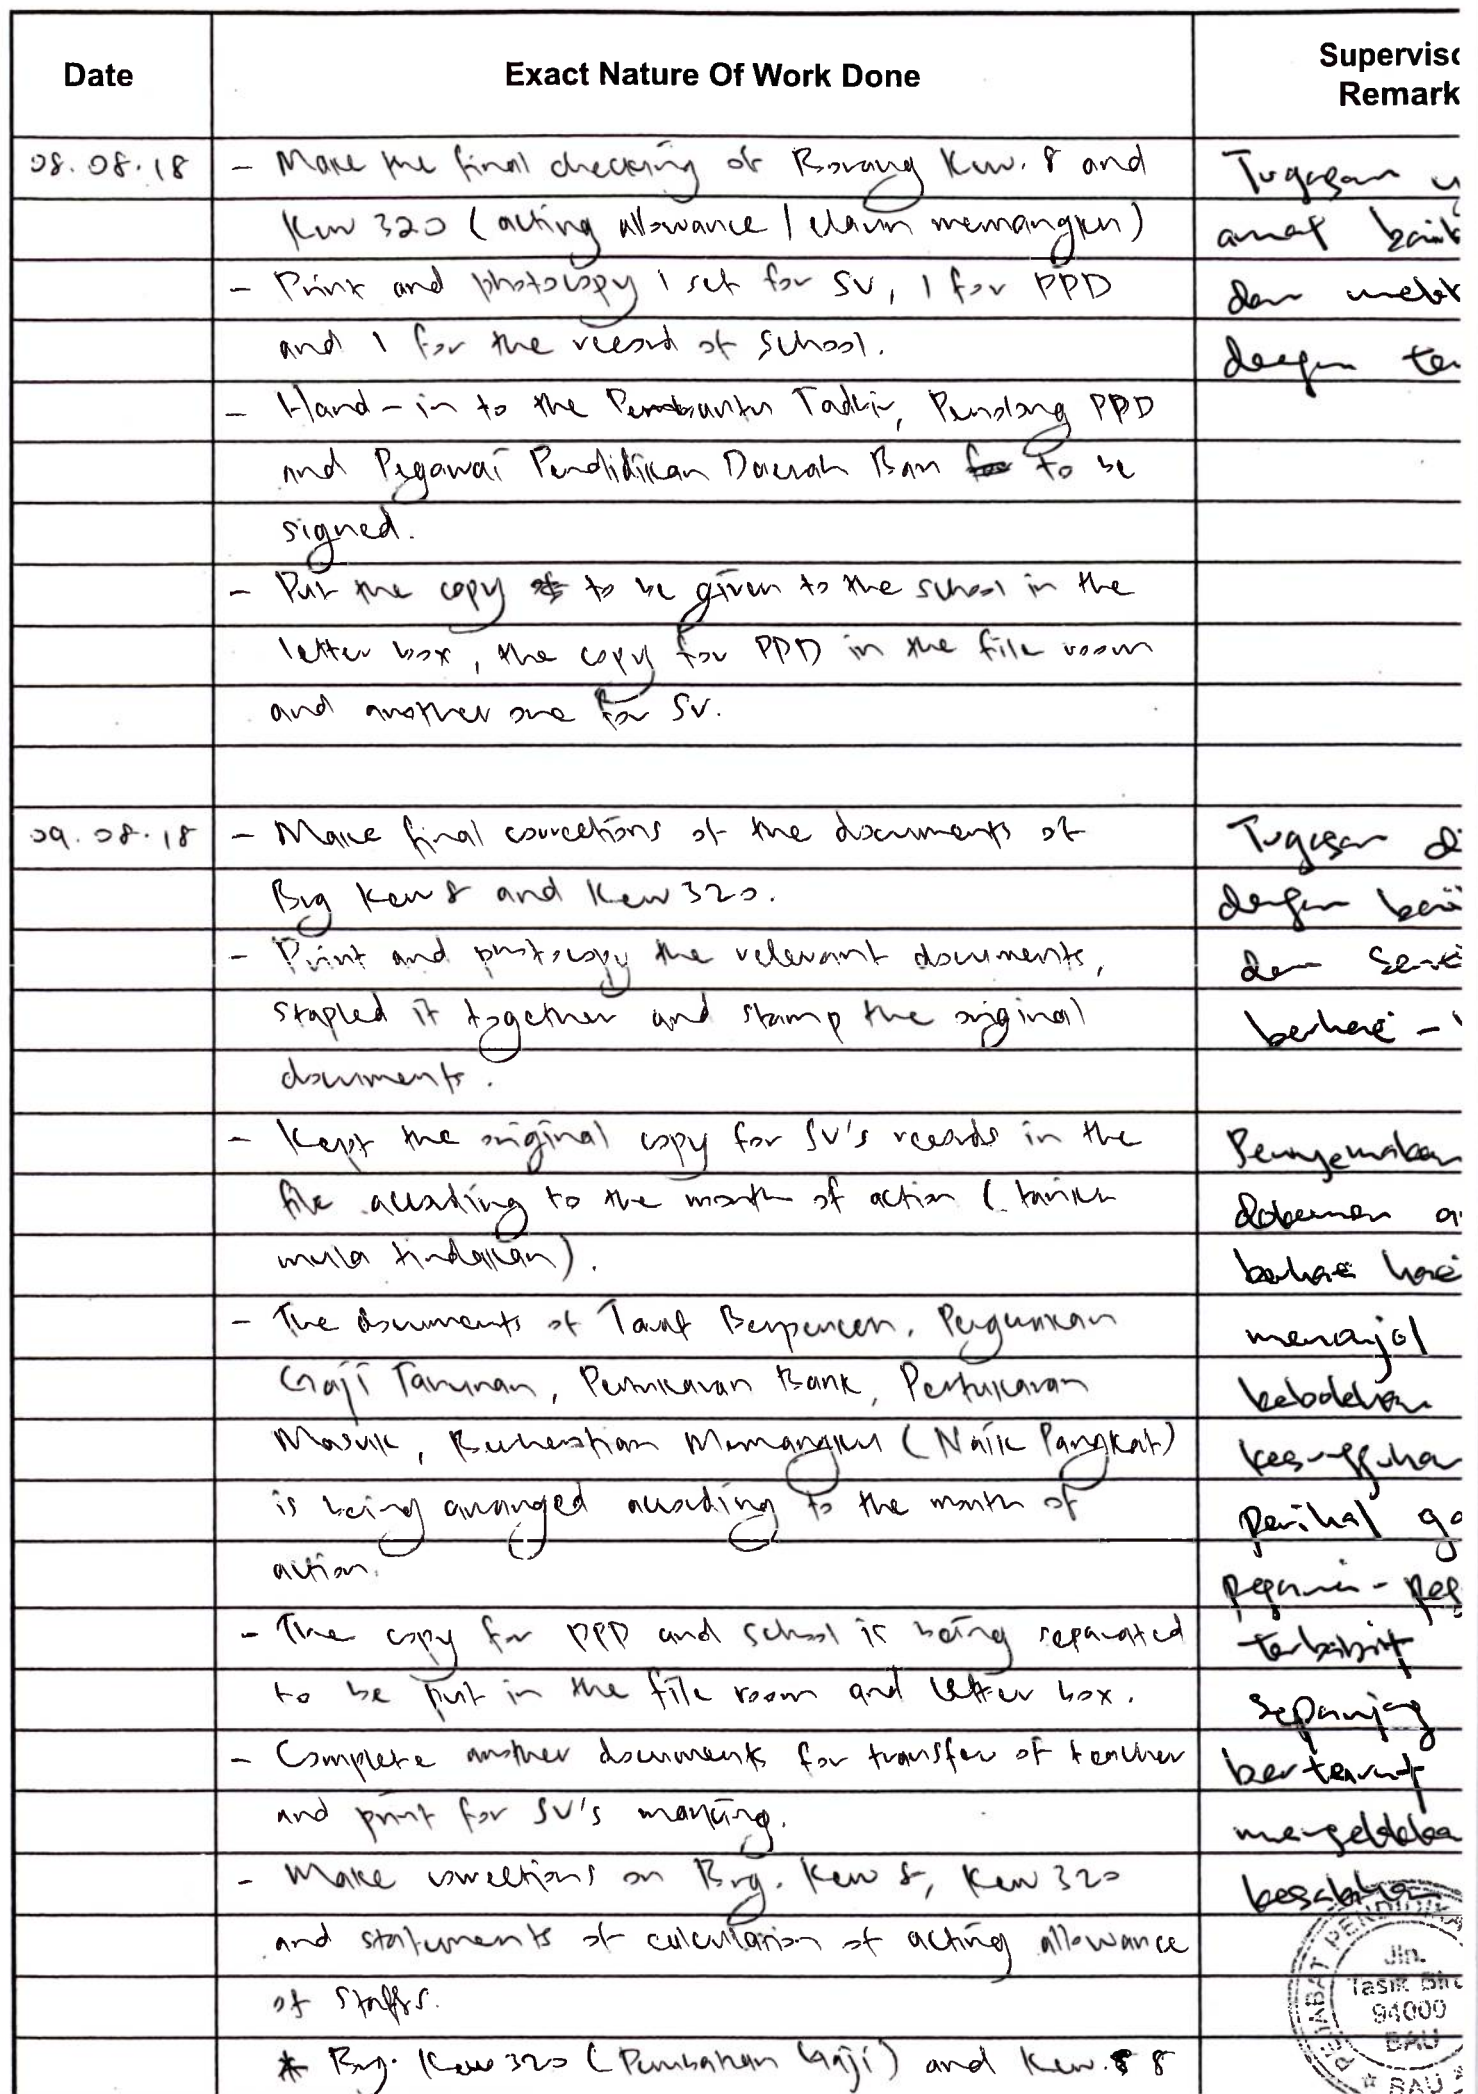 Date Exact Nature Of Work Done Superviso
Remark
08.08.18 - Make the final checking of Borang Kew. 8 and
Kew 320 (acting allowance / claim memangku)
- Print and photocopy 1 set for SV, 1 for PPD
and 1 for the record of school.
- Hand-in to the Pembantu Tadbir, Penolong PPD
and Pegawai Pendidikan Daerah Bau for to be
signed.
- Put the copy to be given to the school in the
letter box, the copy for PPD in the file room
and another one for SV.
09.08.18 - Make final corrections of the documents of
Brg Kew 8 and Kew 320.
- Print and photocopy the relevant documents,
stapled it together and stamp the original
documents.
- Kept the original copy for SV's records in the
file according to the month of action (tarikh
mula tindakan).
- The documents of Taraf Berpencen, Pergunkan
Gaji Tahunan, Pertukaran Bank, Pertukaran
Masuk, Memangku (Naik Pangkat)
is being arranged according to the month of
action.
- The copy for PPD and school is being separated
to be put in the file room and letter box.
- Complete another documents for transfer of teacher
and print for SV's marking.
- Make corrections on Brg. Kew 8, Kew 320
and statements of calculation of acting allowance
of staffs.
* Brg. Kew 320 (Perubahan Gaji) and Kew. 8 8
Tugasan
amat baik
dan
dengan
Tugasan di
dengan
dan
berhati -
Penyemakan
dokumen
menonjol
kebolehan
kesungguhan
perihal
pegawai - peg
terbabit
sepanjang
PEJABAT PENDIDIKA
Jln.
Tasik Biru
94000
BAU
* BAU